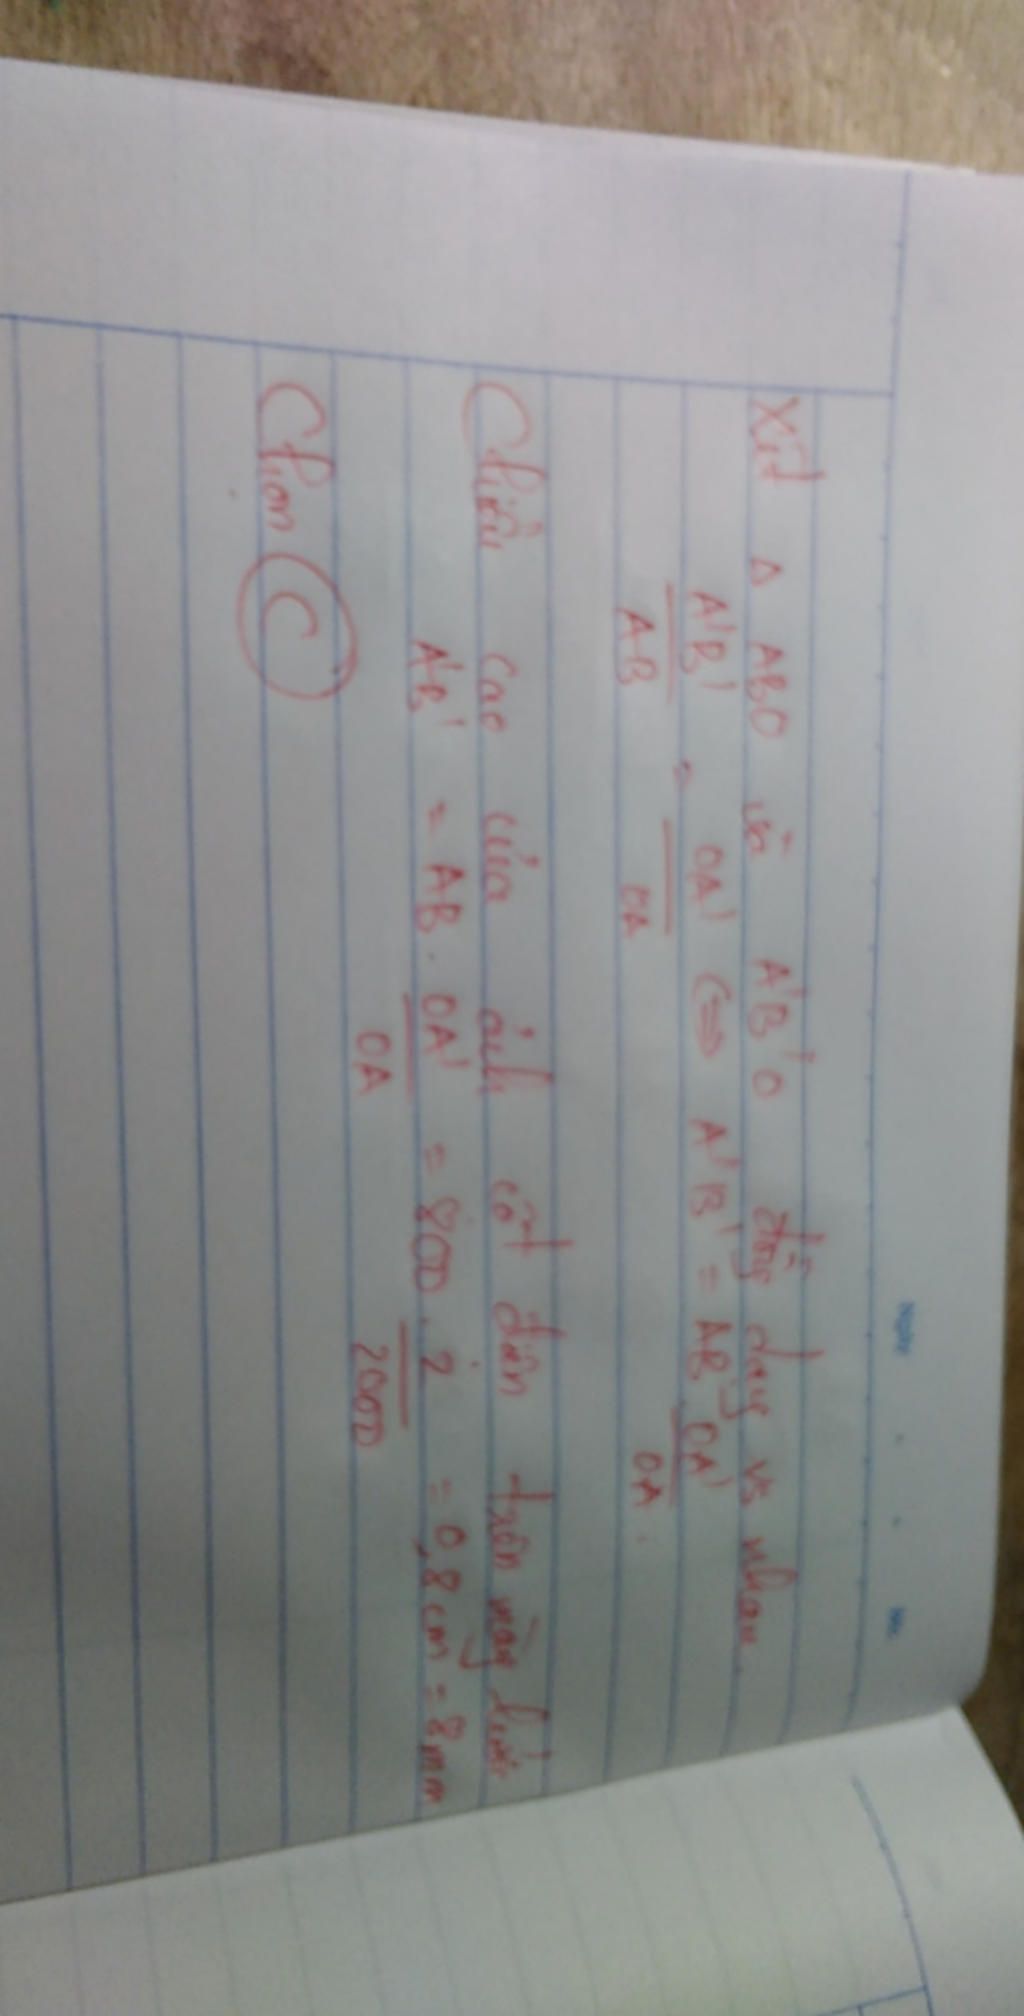 Ngày . . No.
Xét Δ ABO và A'B'O đồng dạng vs nhau.
A'B' / AB = OA' / OA <=> A'B' = AB. OA' / OA.
Chiều cao của ảnh cột điện trên màng lưới
A'B' = AB. OA' / OA = 800. 2 / 2000 = 0,8cm = 8mm
Chọn C